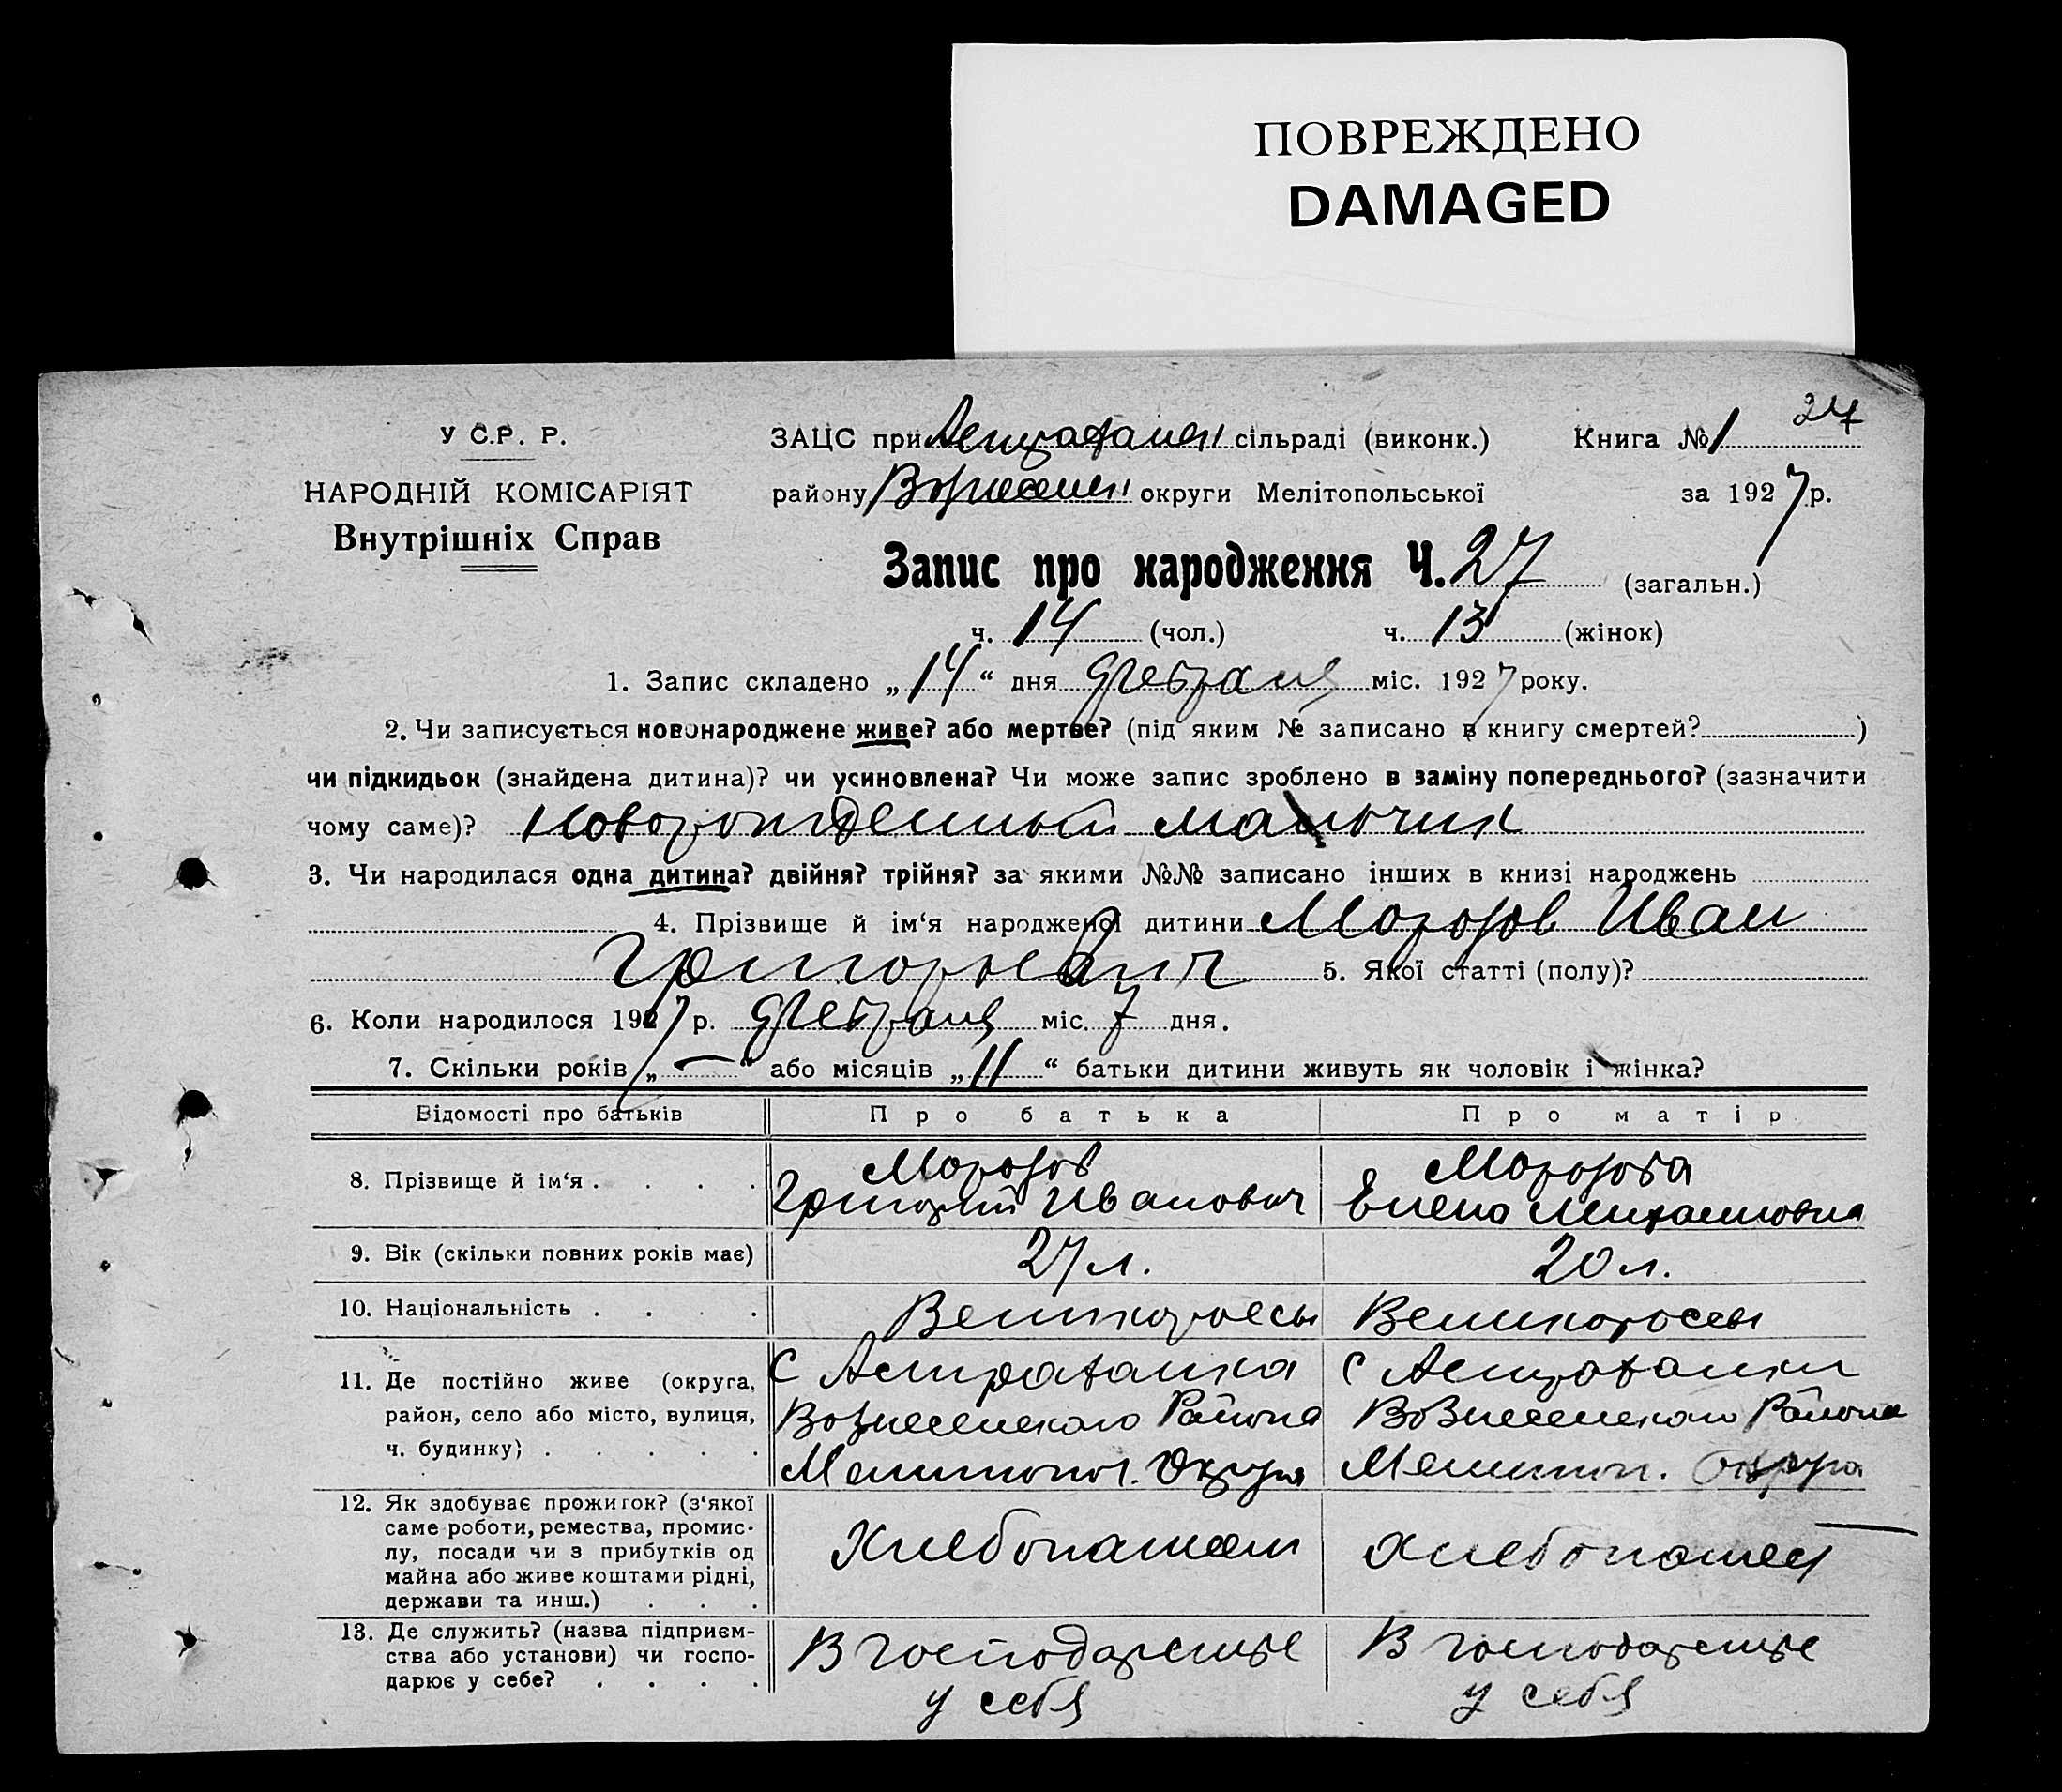 ПОВРЕЖДЕНО
DAMAGED
27
У С.Р. Р. ЗАЦС при Астрахан сільраді (виконк.) Книга № 1
НАРОДНІЙ КОМІСАРІЯТ району Вознесен округи Мелітопольської за 1927 р.
Внутрішніх Справ
Запис про народження Ч. 27 (загальн.)
ч. 14 (чол.) ч. 13 (жінок)
1. Запис складено „14“ дня Февраля міс. 1927 року.
2. Чи записується новонароджене живе? або мертве? (під яким № записано в книгу смертей? )
чи підкидьок (знайдена дитина)? чи усиновлена? Чи може запис зроблено в заміну попереднього? (зазначити
чому саме)? Новорожденный мальчик
3. Чи народилася одна дитина? двійня? трійня? за якими №№ записано інших в книзі народжень
4. Прізвище й ім‘я народженої дитини Морозов Иван
Григорьевич 5. Якої статті (полу)?
6. Коли народилося 1927 р. Февраля міс. 7 дня.
7. Скільки років „—“ або місяців „11“ батьки дитини живуть як чоловік і жінка?
Відомості про батьків Про батька Про матір
8. Прізвище й ім‘я . . . . Морозов Морозова
Григорий Иванович Елена Михайловна
9. Вік (скільки повних років має) 27 л. 20 л.
10. Національність . . . . Великороссы Великороссы
11. Де постійно живе (округа, С Астраханка С Астраханки
район, село або місто, вулиця, Вознесенского Района Вознесенского Района
ч. будинку) . . . . . Мелитопол. Округа Мелитоп. Округа
12. Як здобуває прожиток? (з‘якої
саме роботи, ремества, промис-
лу, посади чи з прибутків од Хлебопашец Хлебопашец
майна або живе коштами рідні,
держави та инш.) . . .
13. Де служить? (назва підприєм- В господарстве В господарстве
ства або установи) чи госпо-
дарює у себе? . . . . у себя у себя